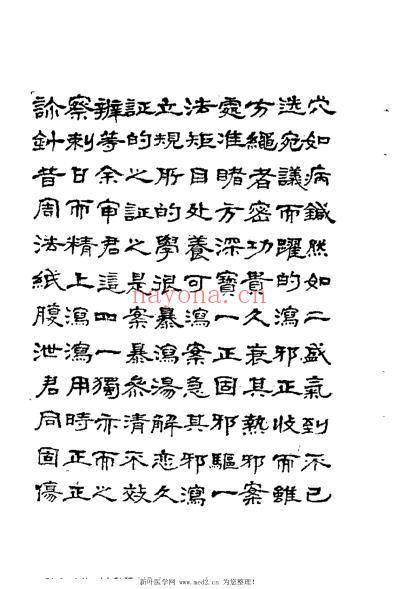 診察辨証立法處方选穴
針刺等的規矩准繩宛如
昔日余之所目睹者議病
周而审証的处方密而鍼
法精君之學養深功躍然
紙上這是很可寶貴的如
腹瀉四案暴瀉一久瀉二
泄瀉一暴瀉案正衰邪盛
君用獨參湯急固其正氣
同時亦清解其熱邪收到
固正而不恋邪驅邪而不
傷正之效久瀉一案雖已
nayona.cn
新叶医学网 www.med2.cn 为您整理!